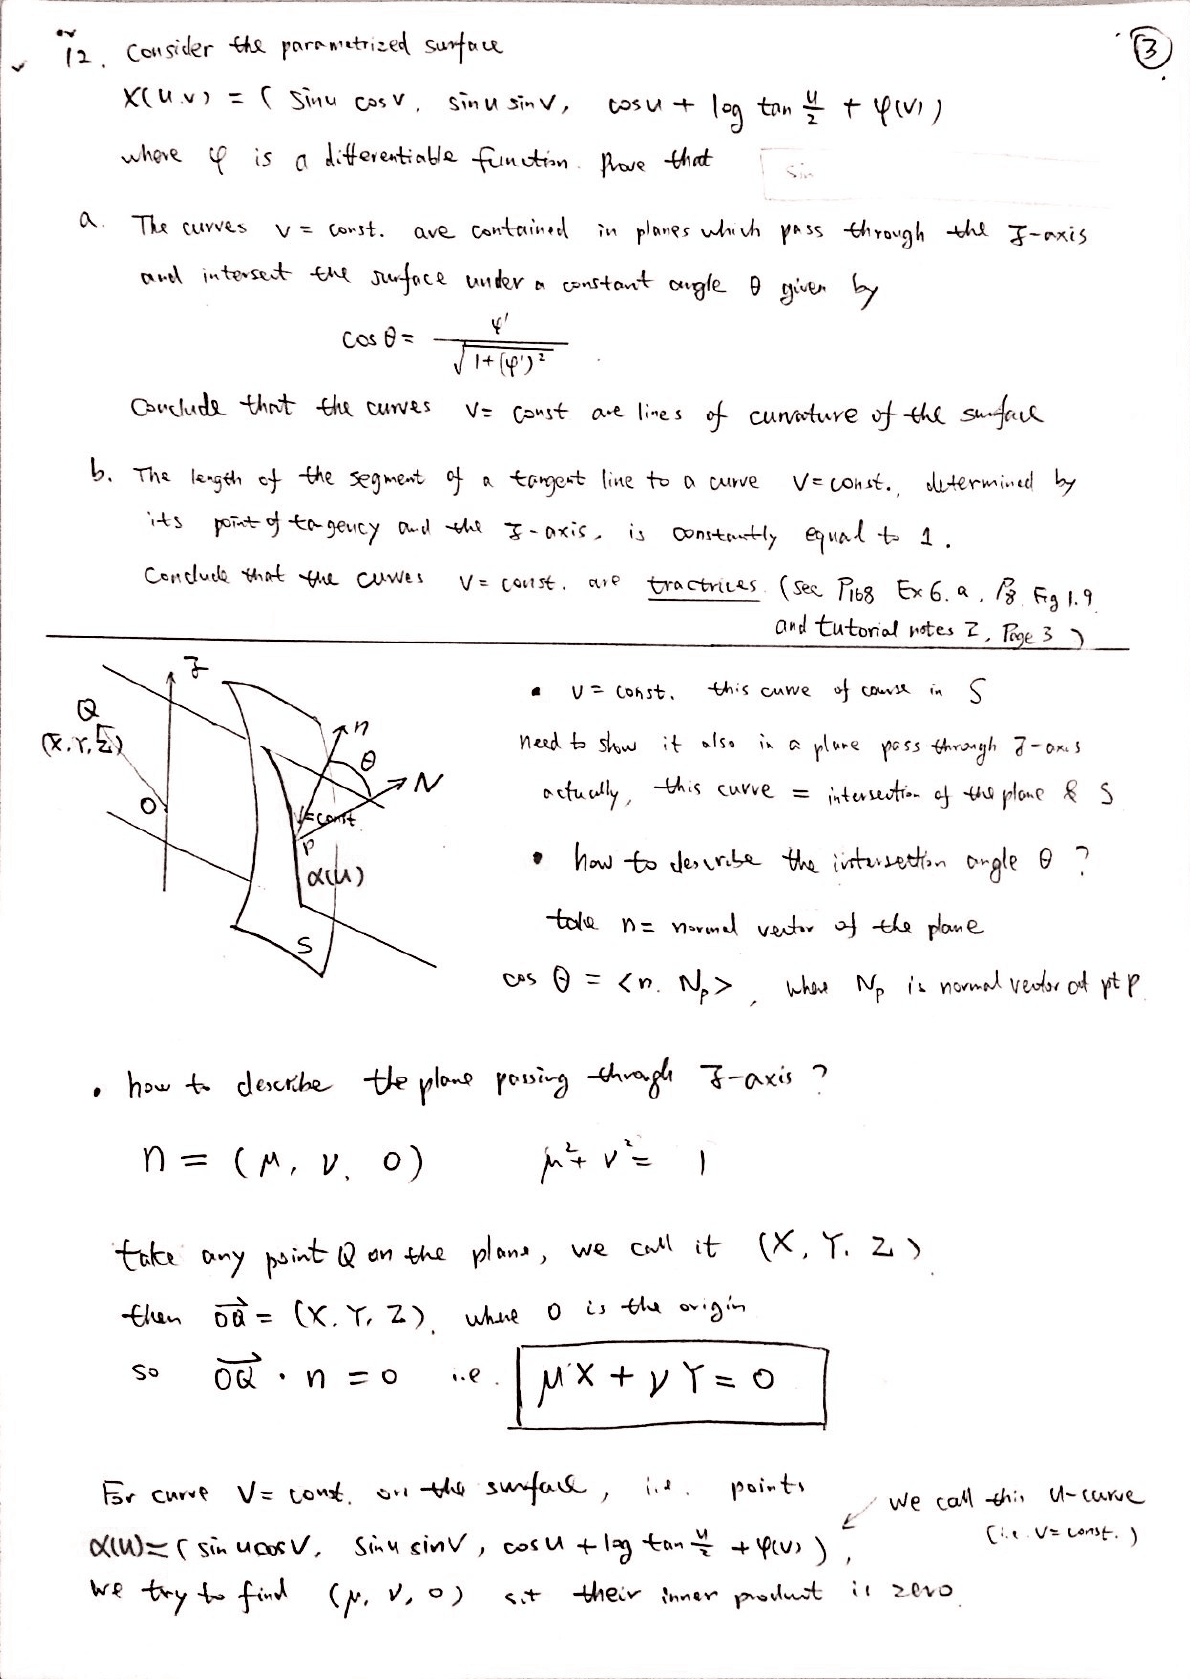 ③
12. Consider the parametrized surface
X(u.v) = ( sinu cosv, sinu sinv, cosu + log tan u/2 + φ(v) )
where φ is a differentiable function. Prove that
sin
a. The curves v = const. are contained in planes which pass through the z-axis
and intersect the surface under a constant angle θ given by
cos θ = φ' / √(1+(φ')²) .
Conclude that the curves v = const are lines of curvature of the surface
b. The length of the segment of a tangent line to a curve v = const., determined by
its point of tagency and the z-axis, is constantly equal to 1.
Conclude that the curves v = const. are tractrices. (see P168 Ex 6.a, P8. Fig 1.9
and tutorial notes 2, Page 3 )
z
Q
(X.Y,Z)
O
n
θ
N
v=const
P
α(u)
S
• v = const. this curve of course in S
need to show it also in a plane pass through z-axis
actually, this curve = intersection of the plane & S
• how to describe the intersection angle θ ?
take n = normal vector of the plane
cos θ = <n. Np> , where Np is normal vector at pt p.
• how to describe the plane passing through z-axis ?
n = (μ, ν, 0) μ² + ν² = 1
take any point Q on the plane, we call it (X, Y. Z)
then OQ→ = (X. Y, Z), where O is the origin
so OQ→ · n = 0 i.e. μX + νY = 0
For curve v = const. on the surface, i.e. points
we call this u-curve
(i.e. v = const.)
α(u) = ( sin u cos v, sin u sin v, cos u + log tan u/2 + φ(v) ),
we try to find (μ, ν, 0) s.t their inner product is zero.